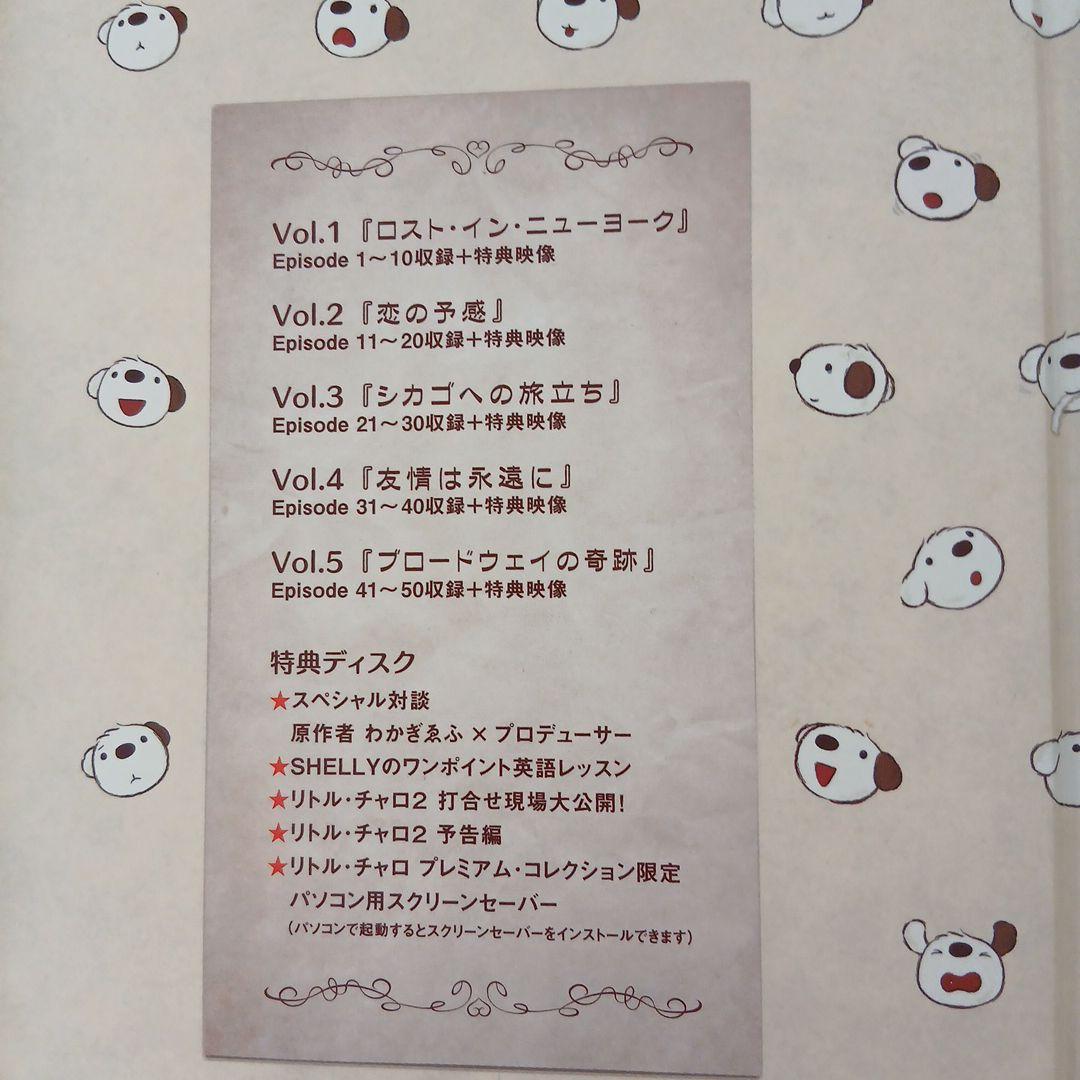 Vol.1『ロスト・イン・ニューヨーク』
Episode 1〜10収録＋特典映像
Vol.2『恋の予感』
Episode 11〜20収録＋特典映像
Vol.3『シカゴへの旅立ち』
Episode 21〜30収録＋特典映像
Vol.4『友情は永遠に』
Episode 31〜40収録＋特典映像
Vol.5『ブロードウェイの奇跡』
Episode 41〜50収録＋特典映像
特典ディスク
★スペシャル対談
原作者 わかぎゑふ×プロデューサー
★SHELLYのワンポイント英語レッスン
★リトル・チャロ2 打合せ現場大公開!
★リトル・チャロ2 予告編
★リトル・チャロ プレミアム・コレクション限定
パソコン用スクリーンセーバー
(パソコンで起動するとスクリーンセーバーをインストールできます)